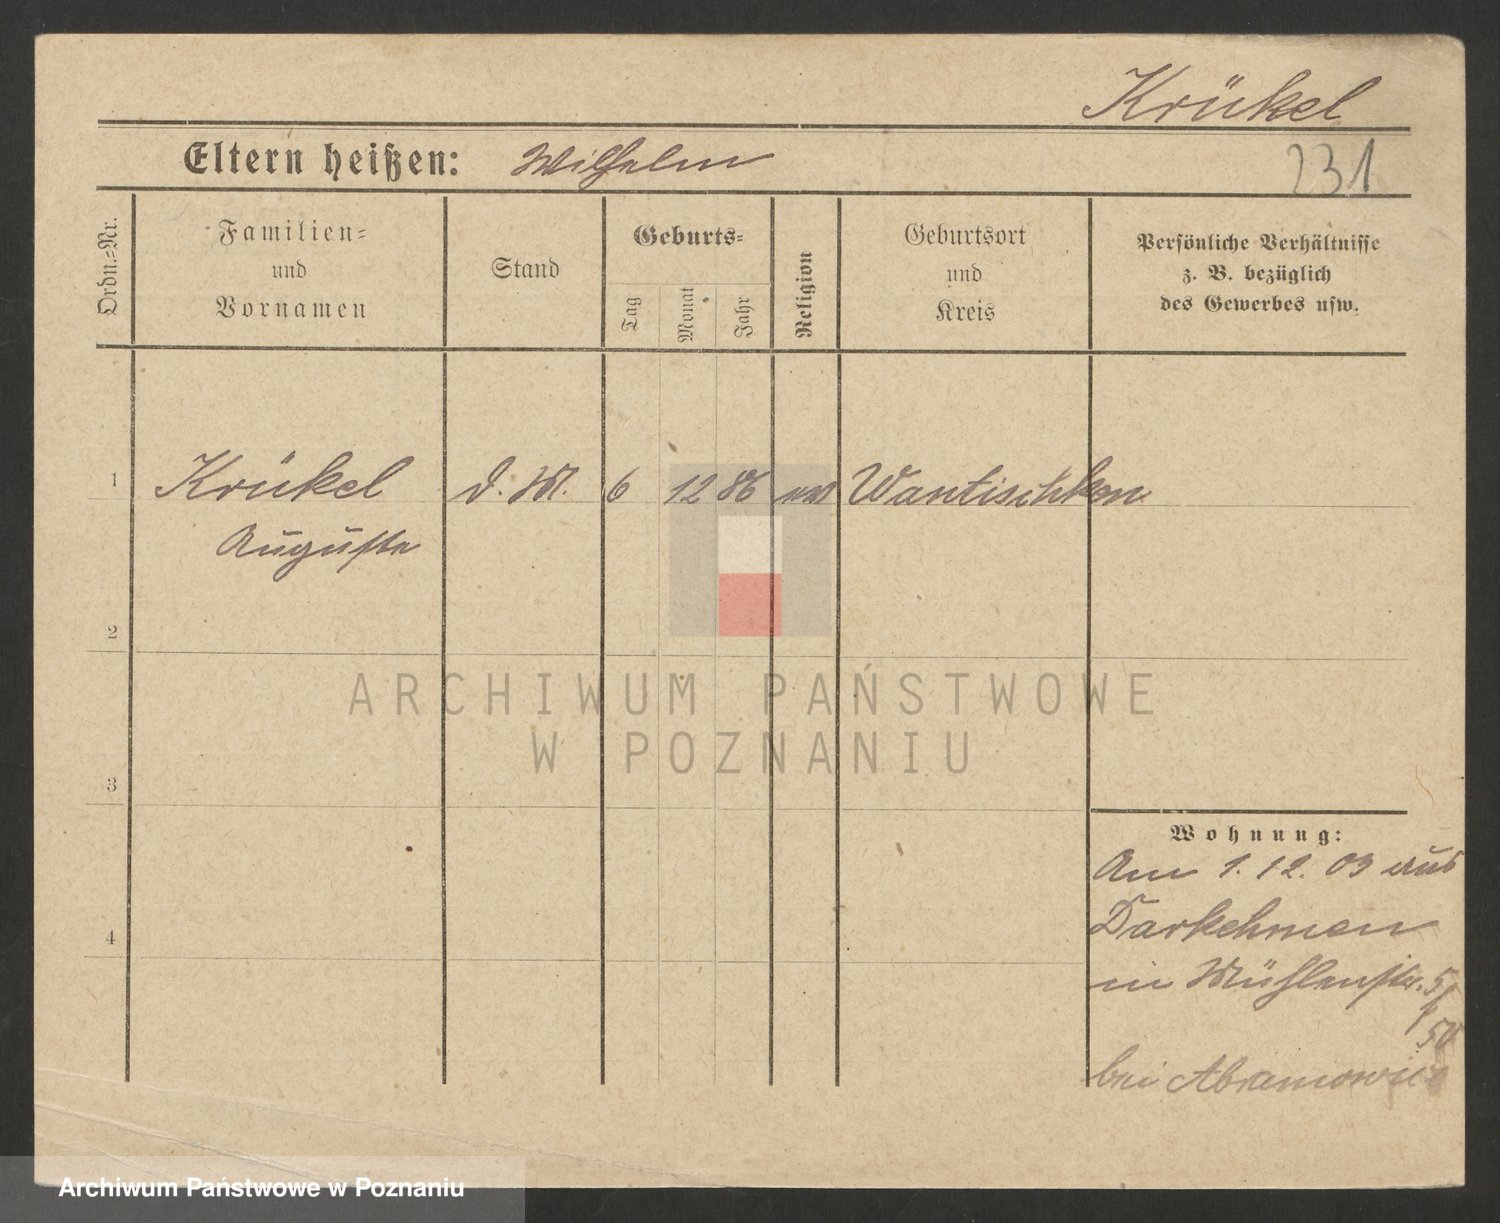 Krükel
Eltern heißen: Wilhelm
231
Ordn.-Nr.
Familien-
und
Vornamen
Stand
Geburts-
Tag
Monat
Jahr
Religion
Geburtsort
und
Kreis
Persönliche Verhältnisse
z. B. bezüglich
des Gewerbes usw.
1 Krükel d. M. 6 12 86 ev Wantischken
Auguste
2
3
4
Wohnung:
Am 1. 12. 09 aus
Darkehmen
in Mühlenstr. 5/
50
bei
ARCHIWUM PAŃSTWOWE
W POZNANIU
Archiwum Państwowe w Poznaniu